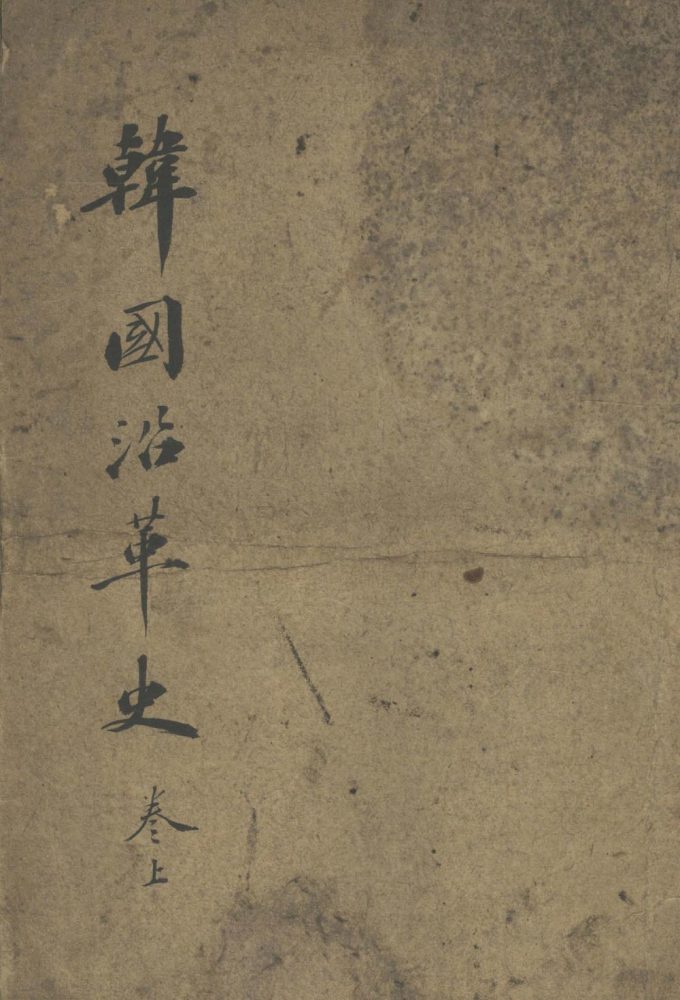 韓國沿革史
卷上